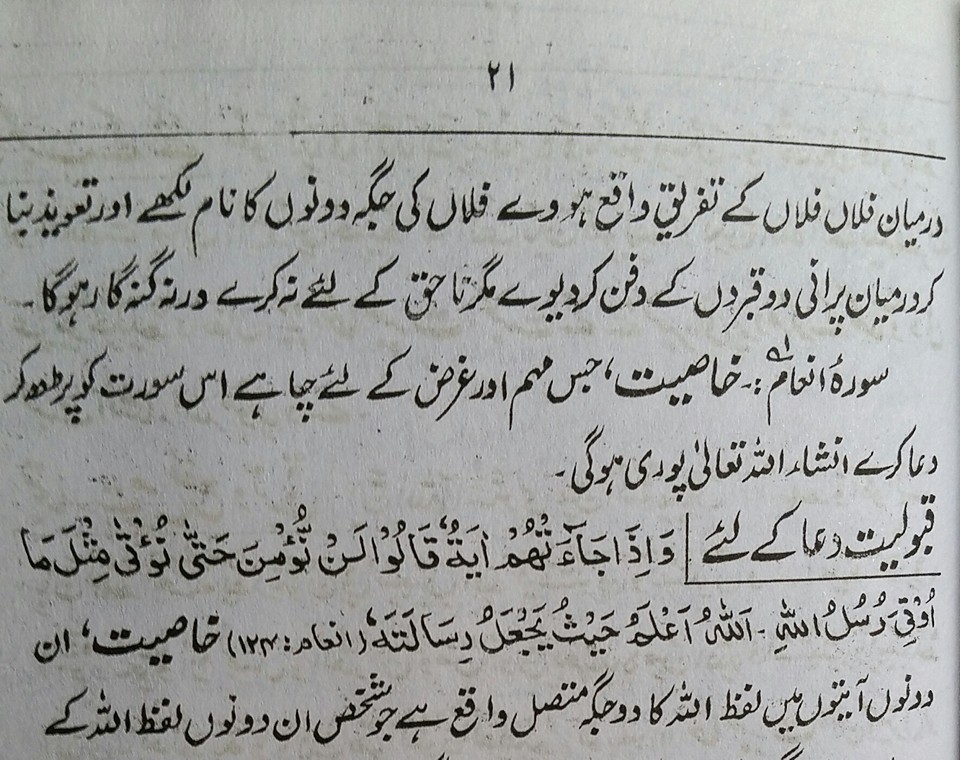 ۲۱
درمیان فلاں فلاں کے تفریق واقع ہووے فلاں کی جگہ دونوں کا نام لکھے اور تعویذ بنا
کر درمیان پرانی دو قبروں کے دفن کر دیوے مگر ناحق کے لئے نہ کرے ورنہ گنہگار ہوگا۔
سورۂ انعام :۔ خاصیت، جس مہم اور غرض کے لئے چاہے اس سورت کو پڑھ کر
دعا کرے انشاء اللہ تعالیٰ پوری ہوگی۔
قبولیت دعا کے لئے وَاِذَا جَآءَتْهُمْ اٰيَةٌ قَالُوْا لَنْ نُّؤْمِنَ حَتّٰى نُؤْتٰى مِثْلَ مَا
اُوْتِىَ رُسُلُ اللّٰهِ ۔ اَللّٰهُ اَعْلَمُ حَيْثُ يَجْعَلُ رِسَالَتَهٗ (انعام: ۱۲۴) خاصیت، ان
دونوں آیتوں میں لفظ اللہ کا دو جگہ متصل واقع ہے جو شخص ان دونوں لفظ اللہ کے